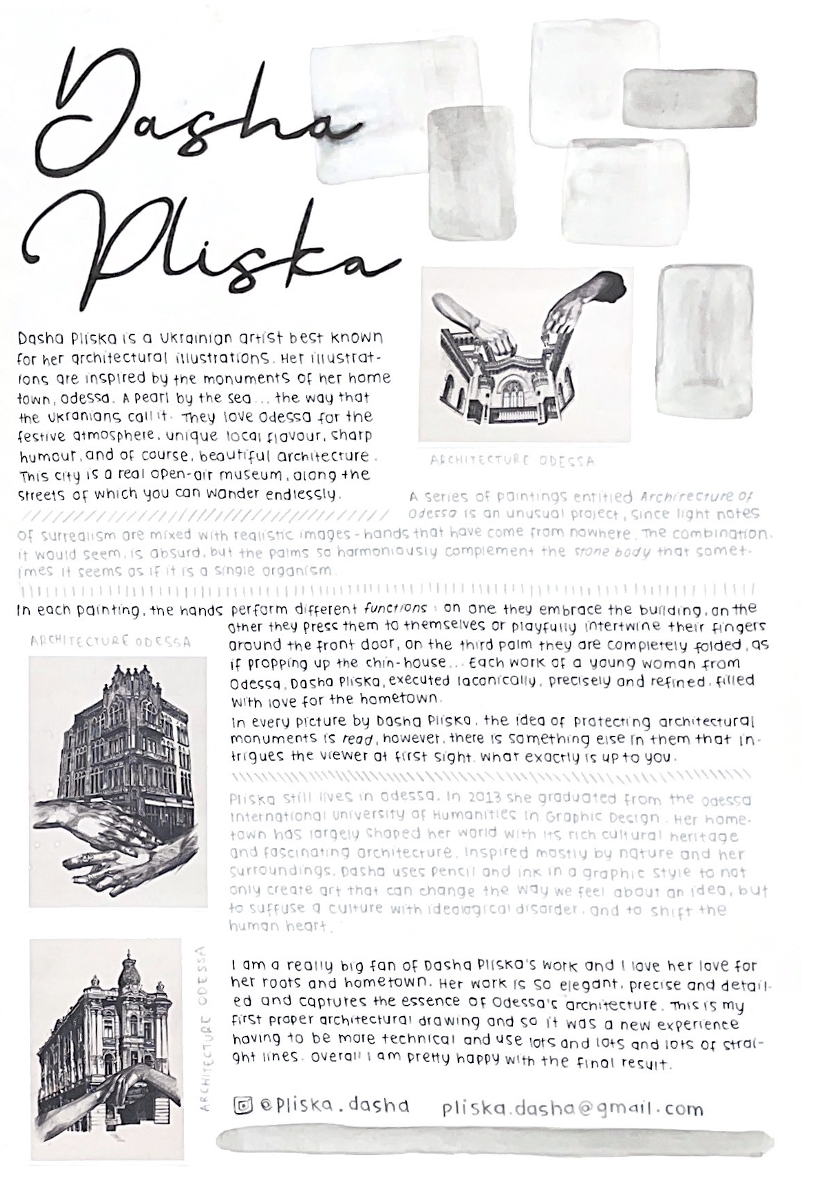 Dasha
Pliska
Dasha Pliska is a Ukrainian artist best known
for her architectural illustrations. Her illustrat-
ions are inspired by the monuments of her home
town, Odessa. A pearl by the sea... the way that
the Ukranians call it. They love Odessa for the
festive atmosphere, unique local flavour, sharp
humour, and of course, beautiful architecture.
This city is a real open-air museum, along the
streets of which you can wander endlessly.
ARCHITECTURE ODESSA
A series of paintings entitled Architecture of
Odessa is an unusual project, since light notes
of surrealism are mixed with realistic images - hands that have come from nowhere. The combination,
it would seem, is absurd, but the palms so harmoniously complement the stone body that somet-
imes it seems as if it is a single organism.
In each painting, the hands perform different functions: on one they embrace the building, on the
other they press them to themselves or playfully intertwine their fingers
around the front door, on the third palm they are completely folded, as
if propping up the chin-house... Each work of a young woman from
Odessa, Dasha Pliska, executed laconically, precisely and refined, filled
with love for the hometown.
ARCHITECTURE ODESSA
In every picture by Dasha Pliska, the idea of protecting architectural
monuments is read, however, there is something else in them that in-
trigues the viewer at first sight. What exactly is up to you.
Pliska still lives in Odessa. In 2013 she graduated from the Odessa
International University of Humanities in Graphic Design. Her home-
town has largely shaped her world with its rich cultural heritage
and fascinating architecture. Inspired mostly by nature and her
surroundings, Dasha uses pencil and ink in a graphic style to not
only create art that can change the way we feel about an idea, but
to suffuse a culture with ideological disorder, and to shift the
human heart.
ARCHITECTURE ODESSA
I am a really big fan of Dasha Pliska's work and I love her love for
her roots and hometown. Her work is so elegant, precise and detail-
ed and captures the essence of Odessa's architecture. This is my
first proper architectural drawing and so it was a new experience
having to be more technical and use lots and lots and lots of strai-
ght lines. Overall I am pretty happy with the final result.
@pliska.dasha pliska.dasha@gmail.com